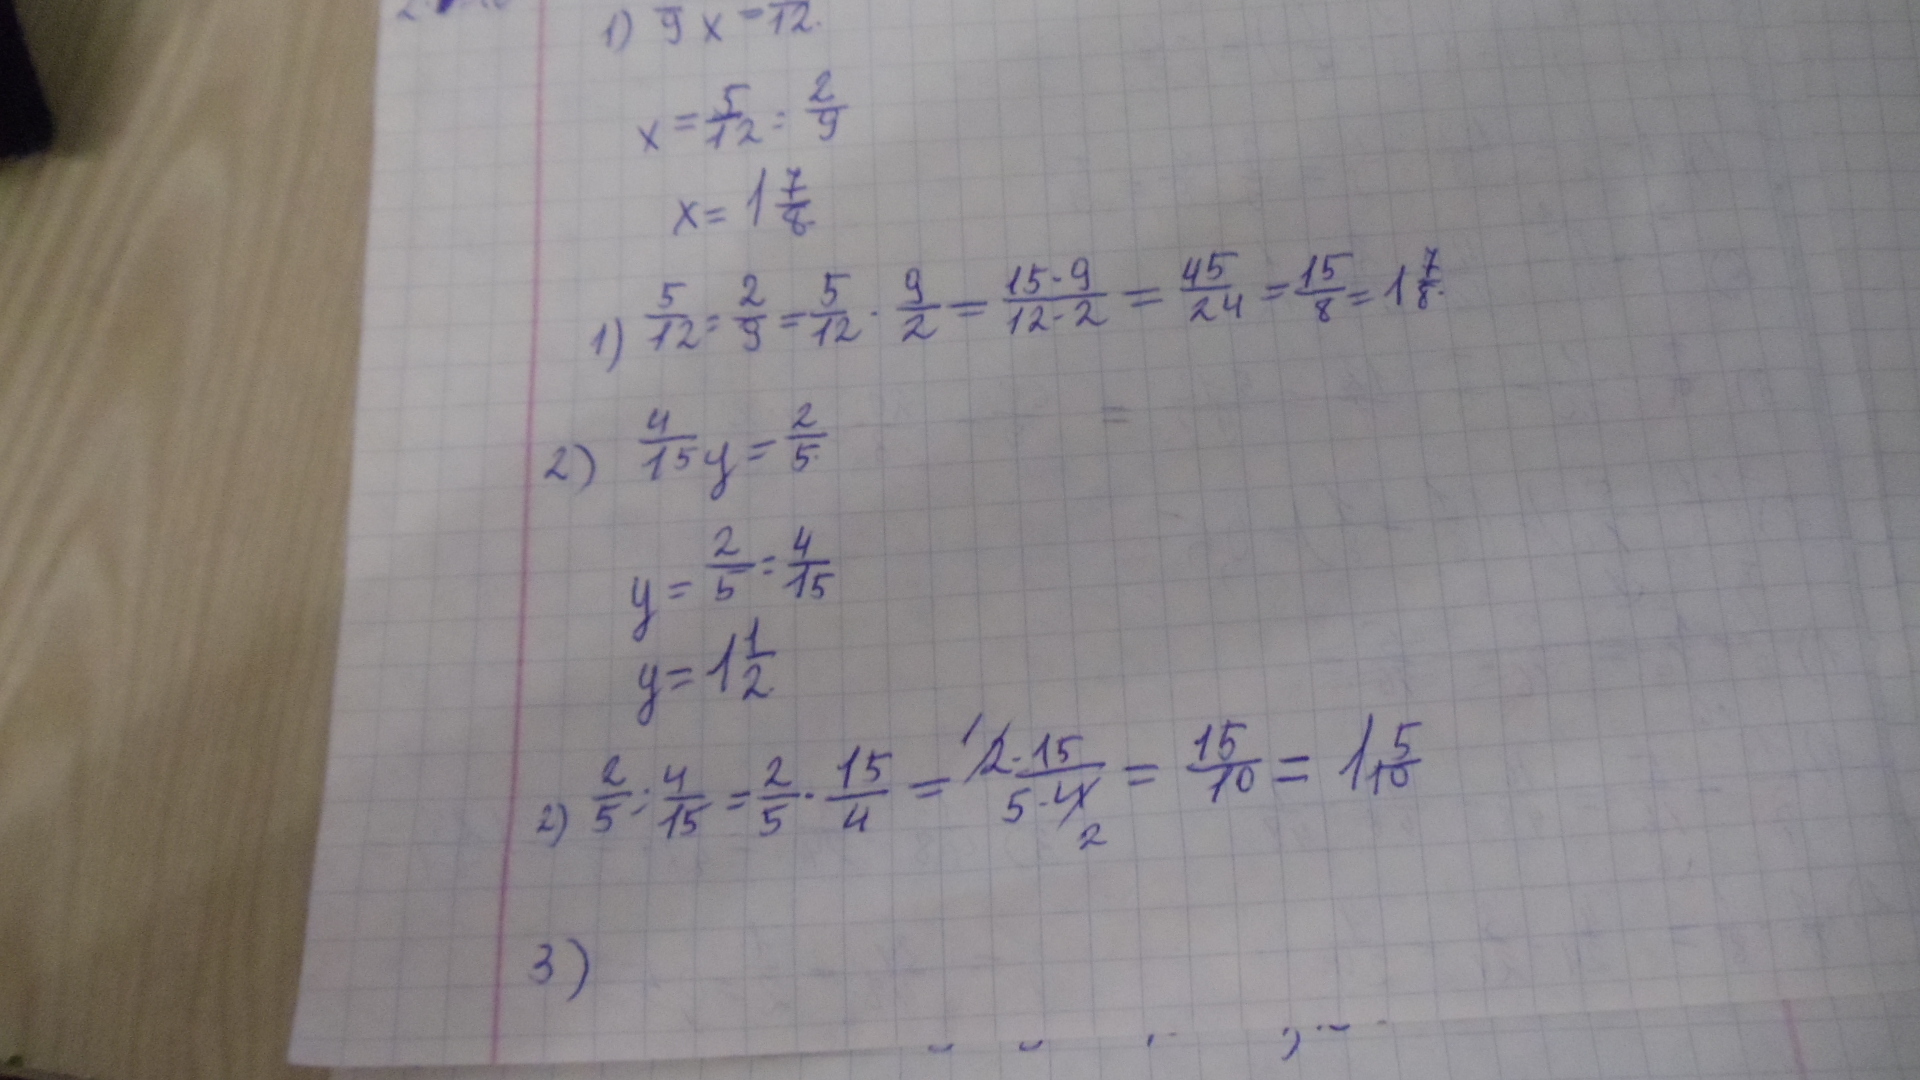 1) 9 x = 12.
x = 5/12 : 2/9
x = 1 7/8
1) 5/12 : 2/9 = 5/12 · 9/2 = 15·9/12·2 = 45/24 = 15/8 = 1 7/8.
2) 4/15 y = 2/5.
y = 2/5 : 4/15
y = 1 1/2
2) 2/5 : 4/15 = 2/5 · 15/4 = 1 2·15/5·4 2 = 15/10 = 1 5/10
3)